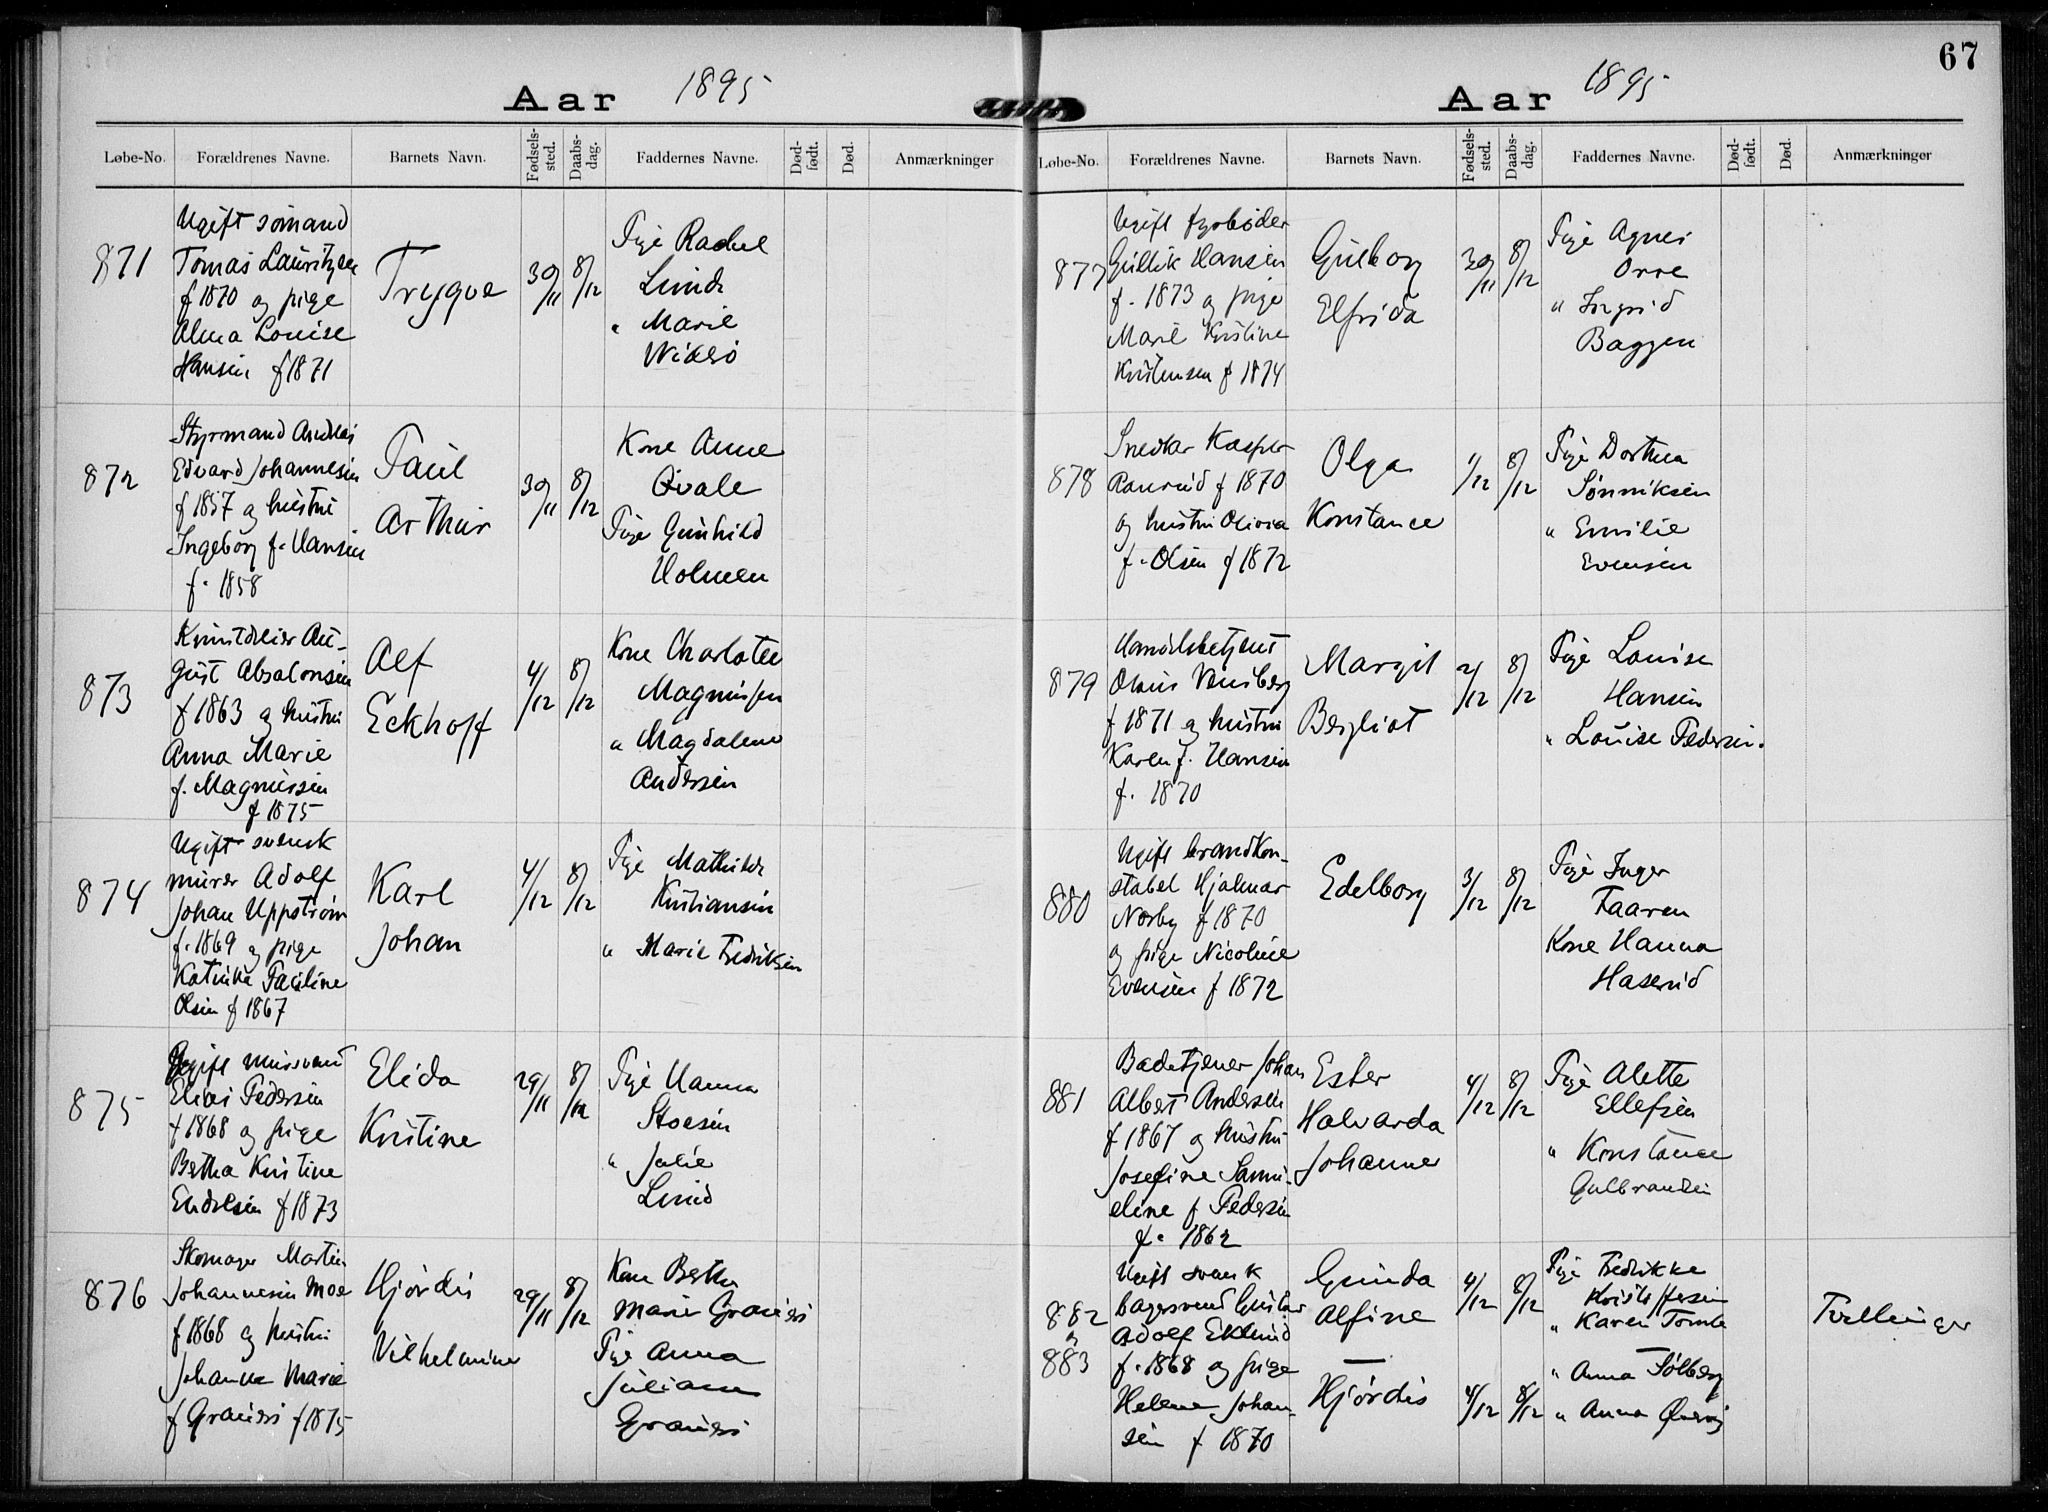 67
Aar 1895
Løbe-No. Forældrenes Navne. Barnets Navn. Fødsels-sted. Daabs-dag. Faddernes Navne. Død-født. Død. Anmærkninger
871
Ugift sømand
Tomas Lauritzen
f 1870 og pige
Alma Louise
Hansen f 1871
Trygve
30/11
8/12
Pige Rachel
Lund
" Marie
872
Styrmand Andreas
Edvard Johannesen
f 1857 og hustru
Ingeborg f. Hansen
f. 1858
Paul
Arthur
30/11
8/12
Kone Anne
Qvale
Pige Gunhild
Holmen
873
Kunstdreier Au-
gust Absalonsen
f 1863 og hustru
Anna Marie
f. Magnussen
f 1875
Alf
Eckhoff
4/12
8/12
Kone Charlotte
Magnussen
" Magdalene
Andersen
874
Ugift svensk
murer Adolf
Johan Uppström
f. 1869 og pige
Katinka Pauline
Olsen f 1867
Karl
Johan
4/12
8/12
Pige Mathilde
Kristiansen
" Marie Fredriksen
875
Ugift mursvend
Elias Pedersen
f 1868 og pige
Bertha Kristine
Endresen f 1873
Elida
Kristine
29/11
8/12
Pige Hanna
" Julie
Lund
876
Skomager Martin
Johannesen Moe
f 1868 og hustru
Johanne Marie
f Grauers f 1875
Hjördis
Vilhelmine
29/11
8/12
Kone Bertha
Marie Grauers
Pige Anna
Juliane
Grauers
Aar 1895
Løbe-No. Forældrenes Navne. Barnets Navn. Fødsels-sted. Daabs-dag. Faddernes Navne. Død-født. Død. Anmærkninger
877
Ugift fyrbøder
Gullik Hansen
f. 1873 og pige
Marie Kristine
Kristensen f 1874
Gulborg
Elfrida
30/11
8/12
Pige Agnes
Orre
" Ingrid
Baggen
878
Snedker Kasper
Ranrud f 1870
og hustru Olivia
f. Olsen f 1872
Olga
Konstance
1/12
8/12
Pige Dorthea
Sønniksen
" Emilie
Evensen
879
Handelsbetjent
Olaus
f 1871 og hustru
Karen f. Hansen
f. 1870
Margit
Bergliot
2/12
8/12
Pige Louise
Hansen
" Louise Pedersen.
880
Ugift brandkon-
stabel Hjalmar
Norby f 1870
og pige Nicoline
Evensen f 1872
Edelborg
3/12
8/12
Pige Inger
Faaren
Kone Hanna
Haserud
881
Badetjener Johan
Albert Andersen
f 1867 og hustru
Josefine Samu-
eline f Pedersen
f. 1862
Ester
Halvarda
Johanne
4/12
8/12
Pige Alette
Ellefsen
" Konstance
Gulbrandsen
882
og
883
Ugift svensk
bagersvend Gustav
Adolf Eklund
f. 1868 og pige
Helene Johan-
sen f 1870
Gunda
Alfine
—
Hjördis
4/12
8/12
4/12
8/12
Pige Fredrikke
Kristoffersen
" Karen
—
" Anna Solberg
" Anna
Tvillinger